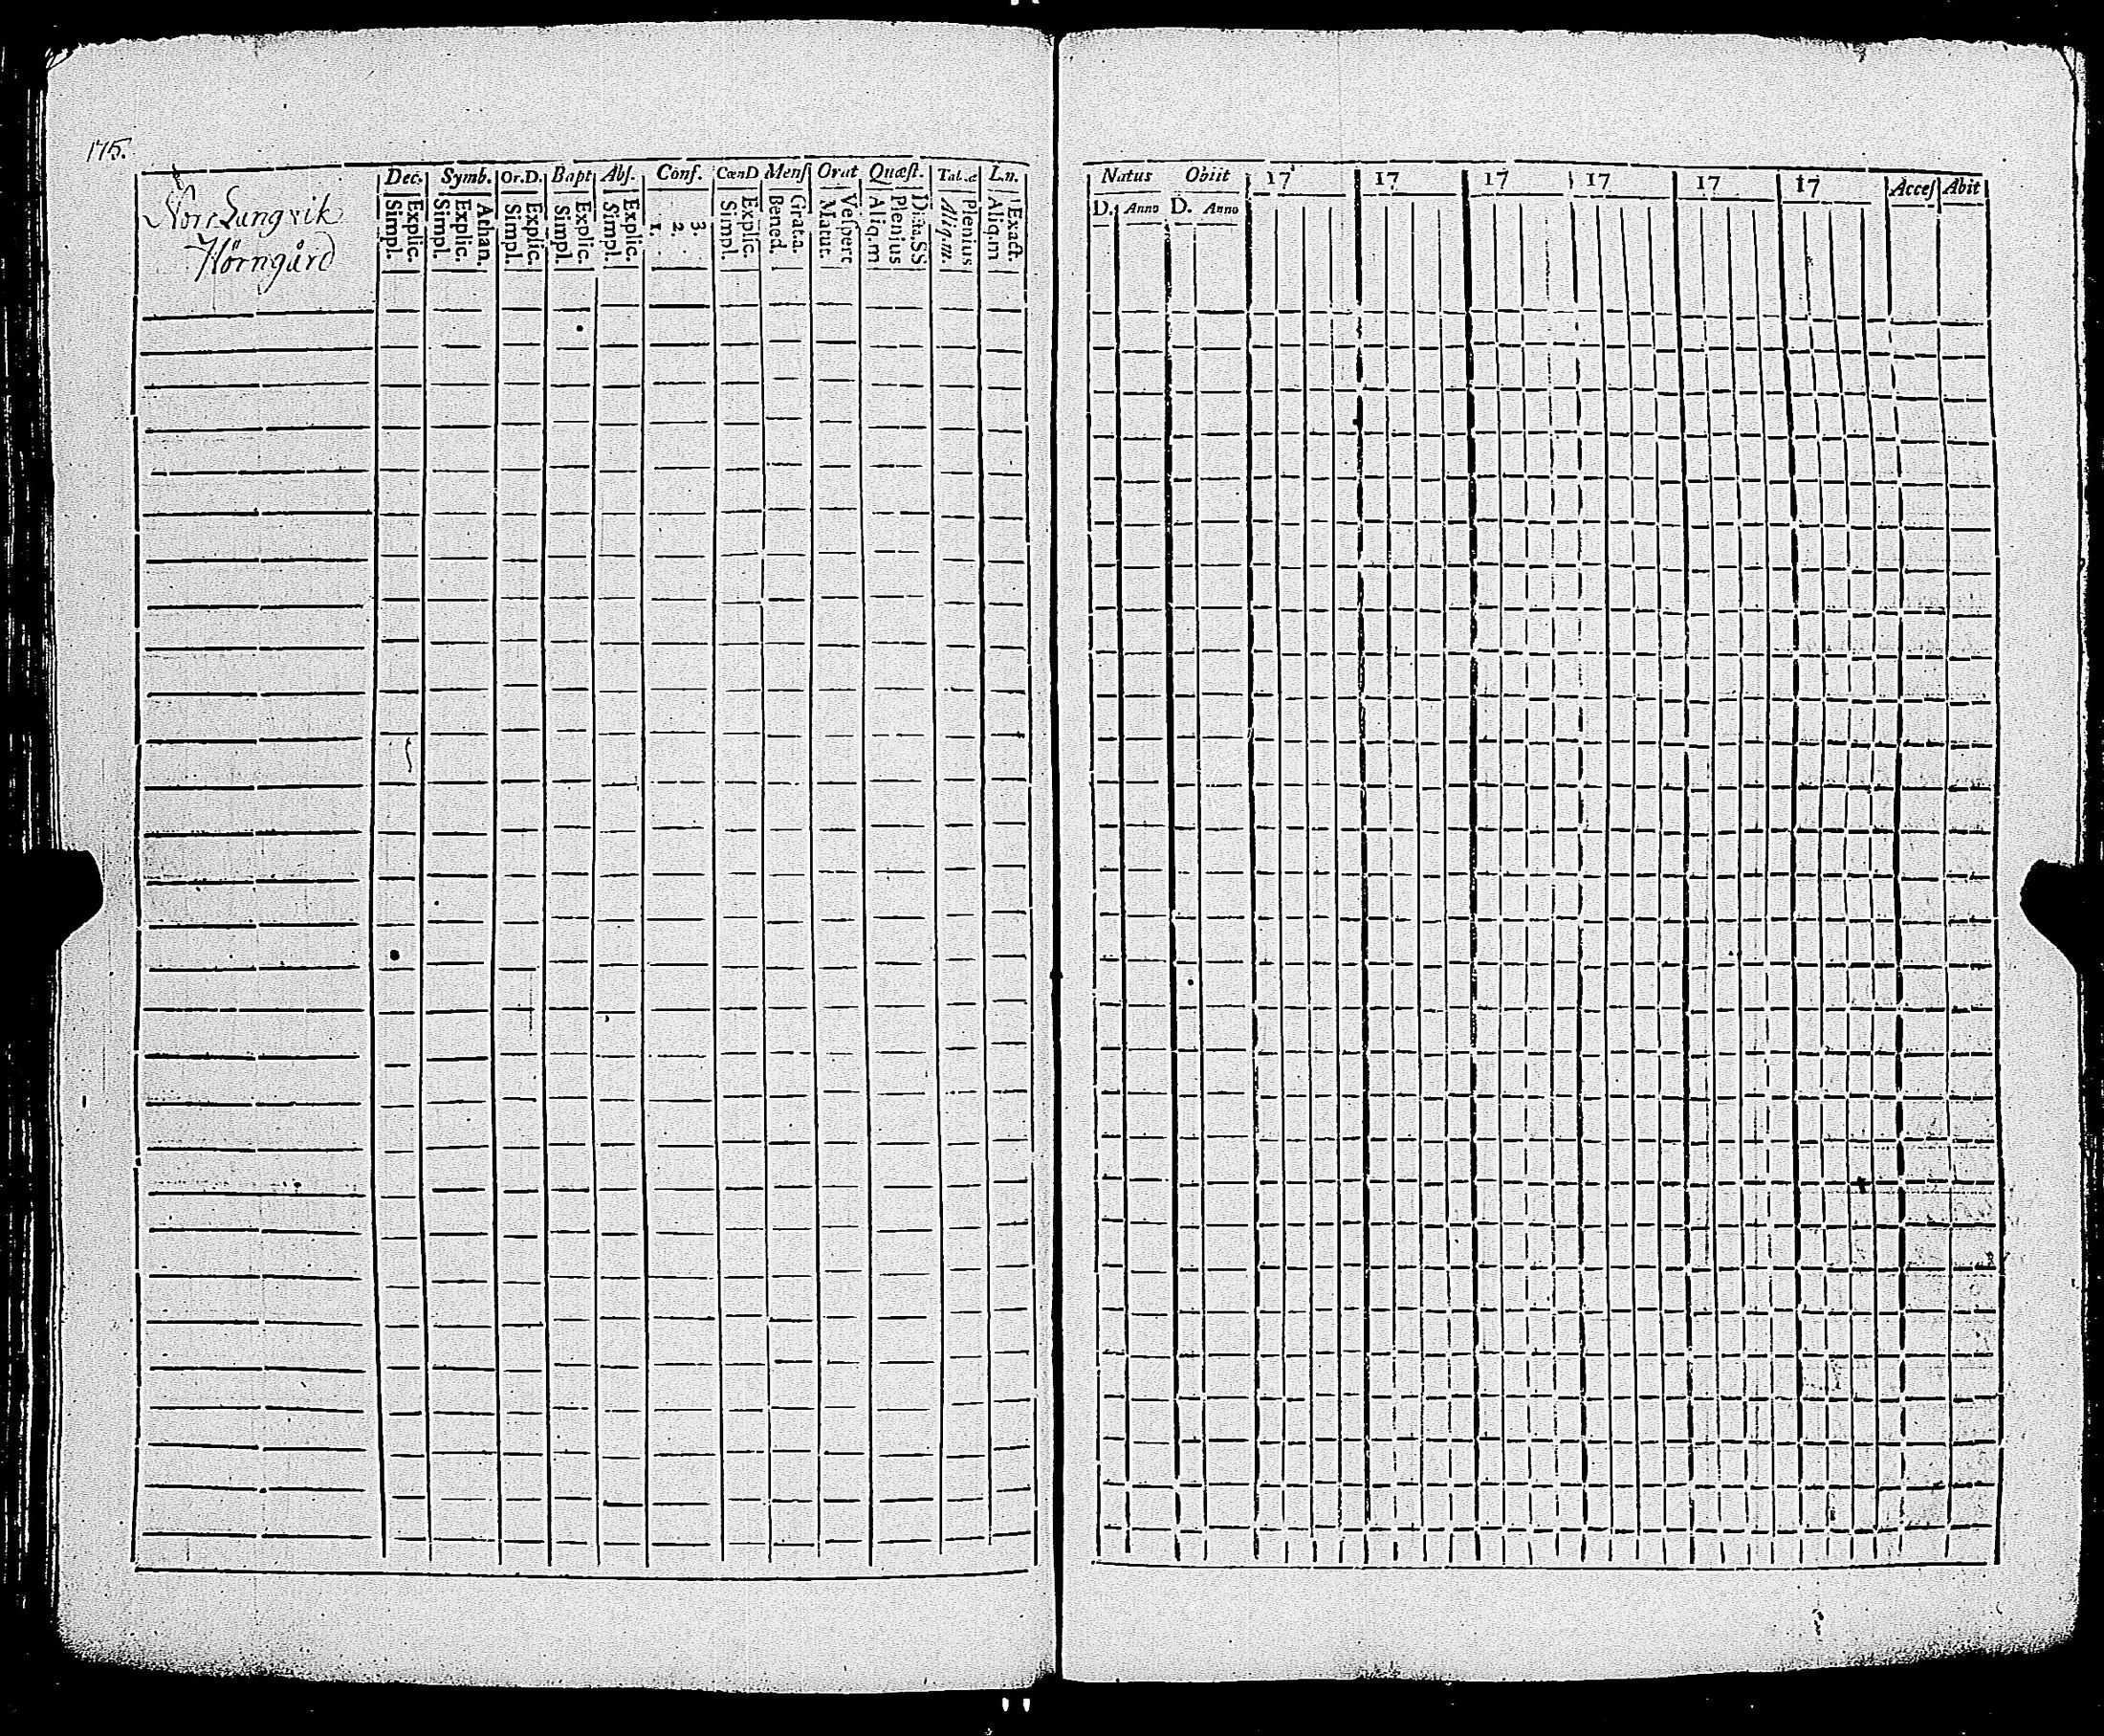 175.
Norr Långvik
Hörngård
Dec. Symb. Or.D. Bapt Abs. Conf. CœnD Mens Orat Quæst. Tab.æ L.n.
Simpl. Explic. Simpl. Explic. Athan. Simpl. Explic. Simpl. Explic. Simpl. Explic. 1. 2. 3. Simpl. Explic. Bened. Grat.a. Matut. Vespert Aliq.m Plenius Dicta.SS Aliq.m. Plenius Aliq.m Exact.
Natus Obiit 17 17 17 17 17 17 Acces Abit
D. Anno D. Anno